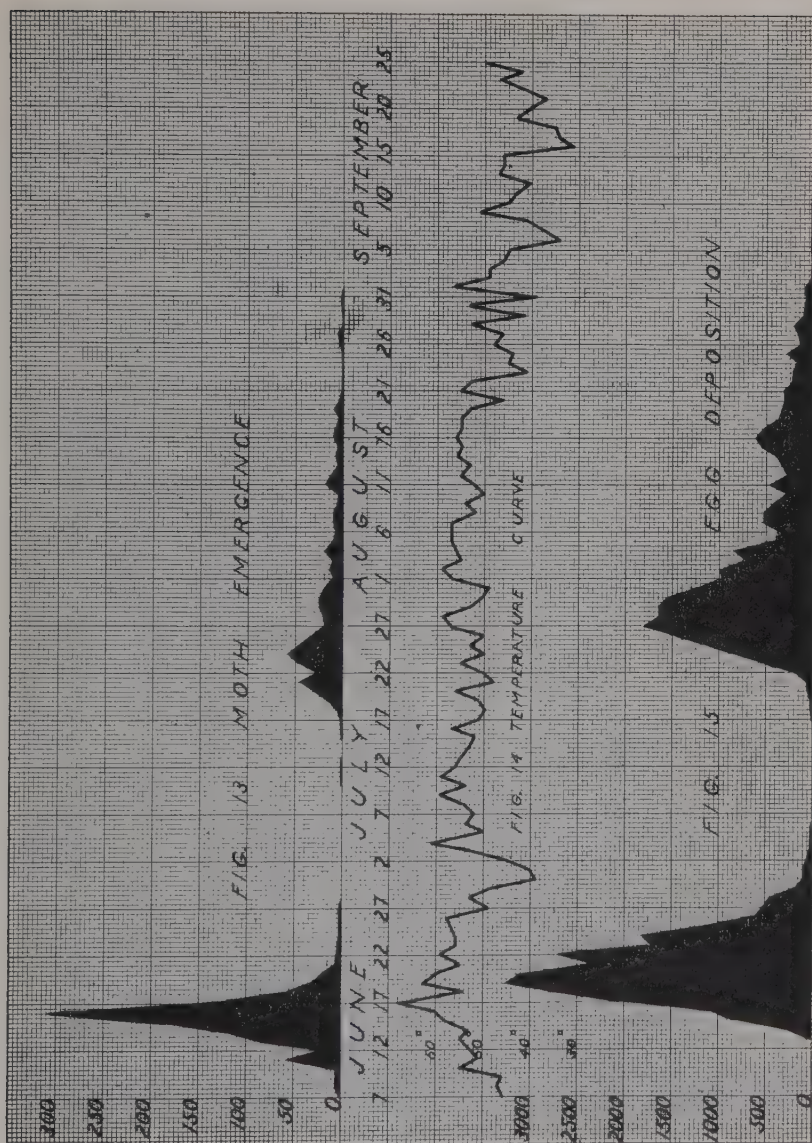 300
250
FIG. 13 MOTH EMERGENCE
200
150
100
50
0
JUNE JULY AUGUST SEPTEMBER
7 12 17 22 27 2 7 12 17 22 27 1 6 11 16 21 26 31 5 10 15 20 25
60°
50°
40°
30°
FIG. 14 TEMPERATURE CURVE
3000
2500
2000
1500
1000
500
0
FIG. 15 EGG DEPOSITION